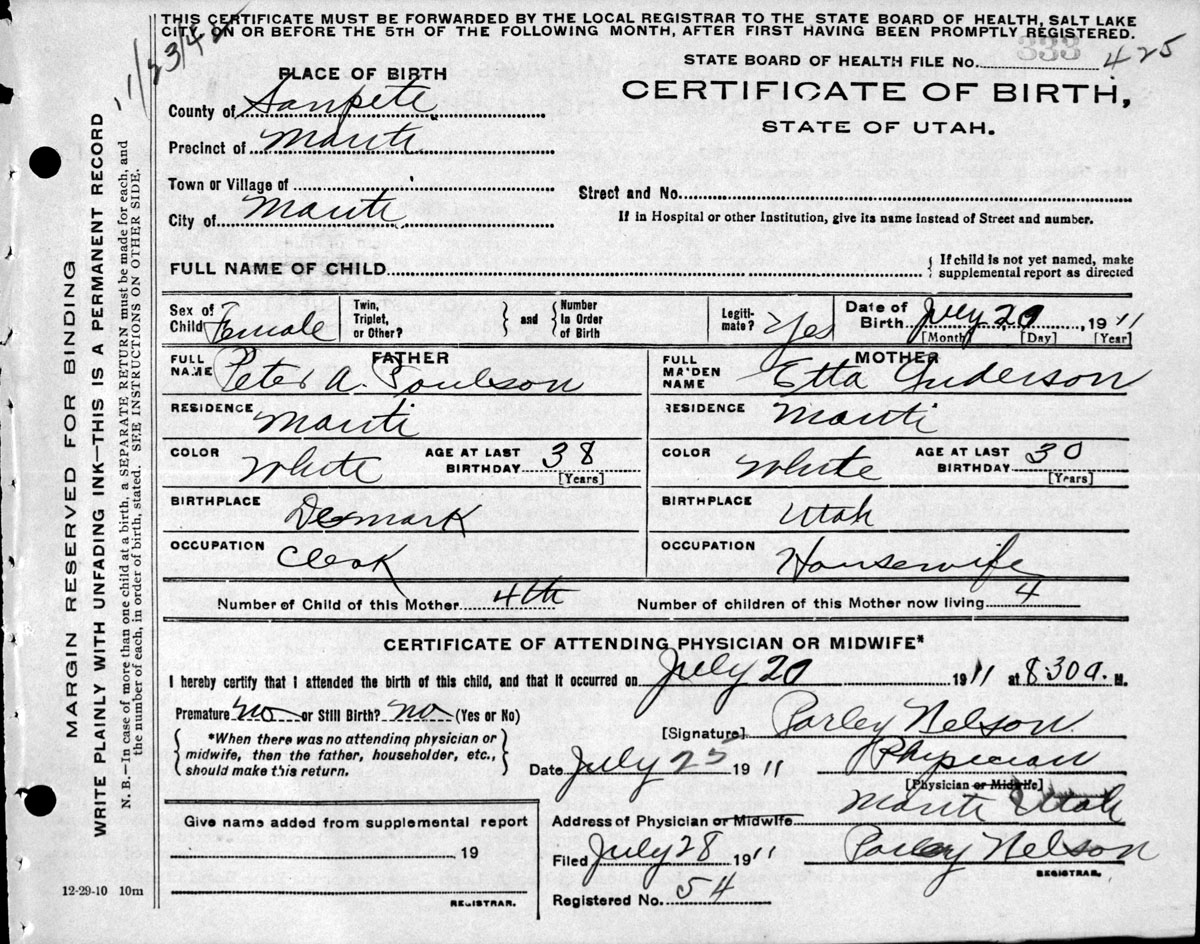 THIS CERTIFICATE MUST BE FORWARDED BY THE LOCAL REGISTRAR TO THE STATE BOARD OF HEALTH, SALT LAKE
CITY ON OR BEFORE THE 5TH OF THE FOLLOWING MONTH, AFTER FIRST HAVING BEEN PROMPTLY REGISTERED.
333
STATE BOARD OF HEALTH FILE No. 425
CERTIFICATE OF BIRTH,
STATE OF UTAH.
PLACE OF BIRTH
County of Sanpete
Precinct of Manti
Town or Village of
City of Manti
Street and No.
If in Hospital or other Institution, give its name instead of Street and number.
FULL NAME OF CHILD { If child is not yet named, make
supplemental report as directed
Sex of Child Female
Twin, Triplet, or Other? } and { Number In Order of Birth
Legiti-mate? Yes
Date of Birth July 20, 1911
[Month] [Day] [Year]
FATHER
FULL NAME Peter A. Poulson
RESIDENCE Manti
COLOR White AGE AT LAST BIRTHDAY 38 [Years]
BIRTHPLACE Denmark
OCCUPATION Clerk
MOTHER
FULL MAIDEN NAME Etta Anderson
RESIDENCE Manti
COLOR White AGE AT LAST BIRTHDAY 30 [Years]
BIRTHPLACE Utah
OCCUPATION Housewife
Number of Child of this Mother 4th Number of children of this Mother now living 4
CERTIFICATE OF ATTENDING PHYSICIAN OR MIDWIFE*
I hereby certify that I attended the birth of this child, and that it occurred on July 20 1911 at 8:30 a. M.
Premature no or Still Birth? no (Yes or No)
{ *When there was no attending physician or
midwife, then the father, householder, etc.,
should make this return. }
[Signature] Parley Nelson
Date July 25 1911 Physician
[Physician or Midwife]
Address of Physician or Midwife Manti Utah
Filed July 28 1911 Parley Nelson
REGISTRAR.
Registered No. 54
Give name added from supplemental report
19
REGISTRAR.
12-29-10 10m
MARGIN RESERVED FOR BINDING
WRITE PLAINLY WITH UNFADING INK—THIS IS A PERMANENT RECORD
N. B.—In case of more than one child at a birth, a SEPARATE RETURN must be made for each, and
the number of each, in order of birth, stated. SEE INSTRUCTIONS ON OTHER SIDE.